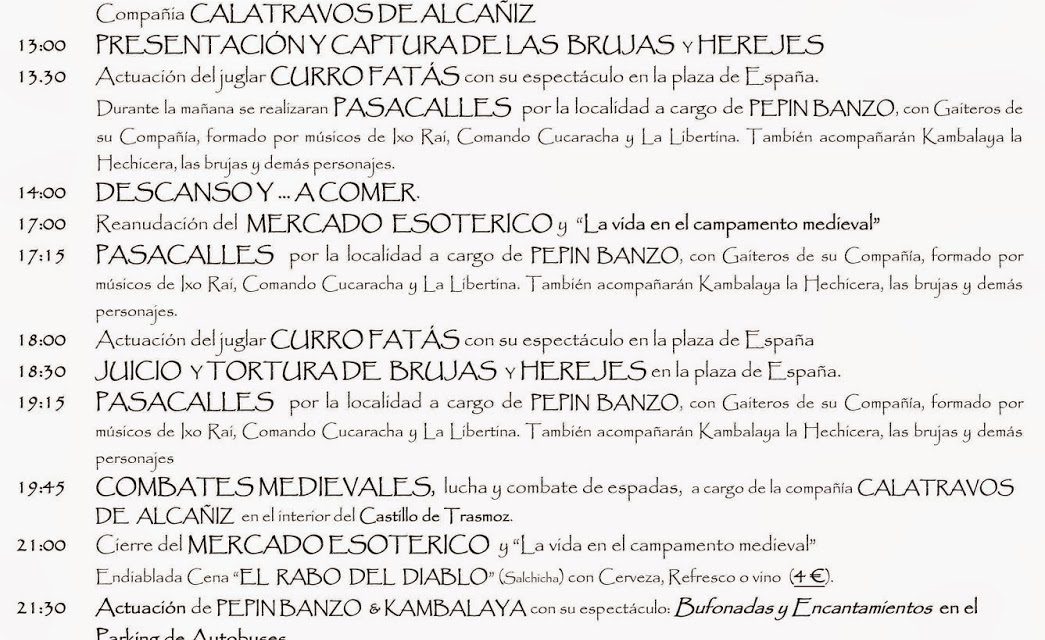 Compañía CALATRAVOS DE ALCAÑIZ
13:00 PRESENTACIÓN Y CAPTURA DE LAS BRUJAS Y HEREJES
13.30 Actuación del juglar CURRO FATÁS con su espectáculo en la plaza de España.
Durante la mañana se realizaran PASACALLES por la localidad a cargo de PEPIN BANZO, con Gaiteros de
su Compañía, formado por músicos de Ixo Rai, Comando Cucaracha y La Libertina. También acompañarán Kambalaya la
Hechicera, las brujas y demás personajes.
14:00 DESCANSO Y ... A COMER.
17:00 Reanudación del MERCADO ESOTERICO y “La vida en el campamento medieval”
17:15 PASACALLES por la localidad a cargo de PEPIN BANZO, con Gaiteros de su Compañía, formado por
músicos de Ixo Raí, Comando Cucaracha y La Libertina. También acompañarán Kambalaya la Hechicera, las brujas y demás
personajes.
18:00 Actuación del juglar CURRO FATÁS con su espectáculo en la plaza de España
18:30 JUICIO Y TORTURA DE BRUJAS Y HEREJES en la plaza de España.
19:15 PASACALLES por la localidad a cargo de PEPIN BANZO, con Gaiteros de su Compañía, formado por
músicos de Ixo Raí, Comando Cucaracha y La Libertina. También acompañarán Kambalaya la Hechicera, las brujas y demás
personajes
19:45 COMBATES MEDIEVALES, lucha y combate de espadas, a cargo de la compañía CALATRAVOS
DE ALCAÑIZ en el interior del Castillo de Trasmoz.
21:00 Cierre del MERCADO ESOTERICO y “La vida en el campamento medieval”
Endiablada Cena “EL RABO DEL DIABLO” (Salchicha) con Cerveza, Refresco o vino (4 €).
21:30 Actuación de PEPIN BANZO & KAMBALAYA con su espectáculo: Bufonadas y Encantamientos en el
Parking de Autobuses